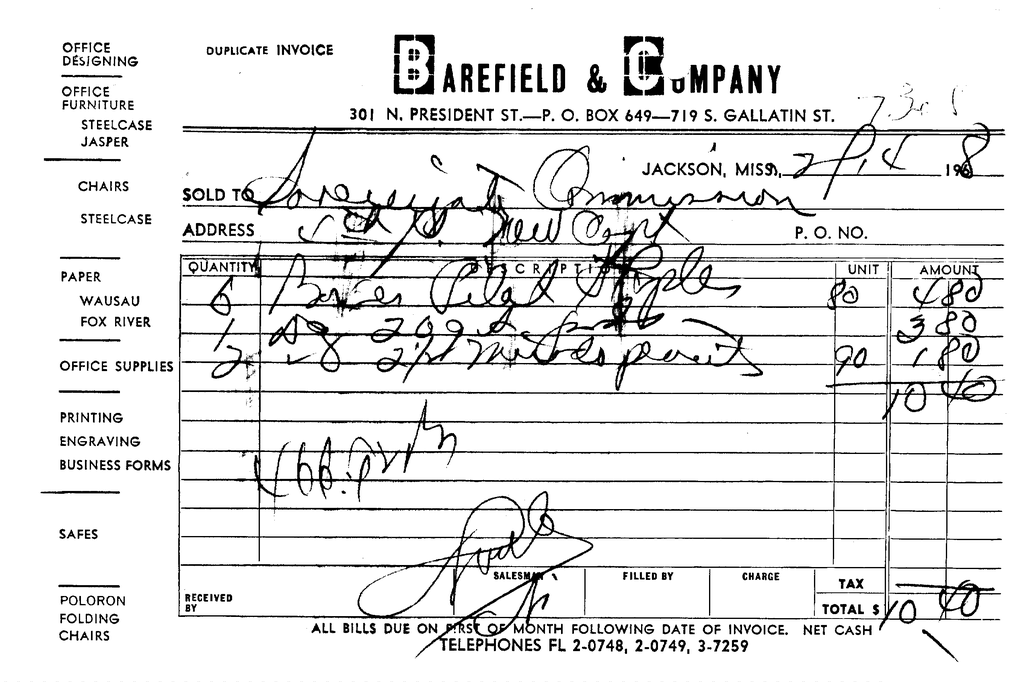 OFFICE DESIGNING
OFFICE FURNITURE
STEELCASE
JASPER
CHAIRS
STEELCASE
PAPER
WAUSAU
FOX RIVER
OFFICE SUPPLIES
PRINTING
ENGRAVING
BUSINESS FORMS
SAFES
POLORON FOLDING CHAIRS
DUPLICATE INVOICE
BAREFIELD & COMPANY
301 N. PRESIDENT ST.—P. O. BOX 649—719 S. GALLATIN ST.
JACKSON, MISS., 1968
SOLD TO Sovereignty Commission
ADDRESS New Capt P. O. NO.
QUANTITY DESCRIPTION UNIT AMOUNT
6 Boxes 80 4 80
1 3 80
2 90 1 80
10 40
RECEIVED BY SALESMAN FILLED BY CHARGE TAX
TOTAL $ 10 40
ALL BILLS DUE ON FIRST OF MONTH FOLLOWING DATE OF INVOICE. NET CASH
TELEPHONES FL 2-0748, 2-0749, 3-7259